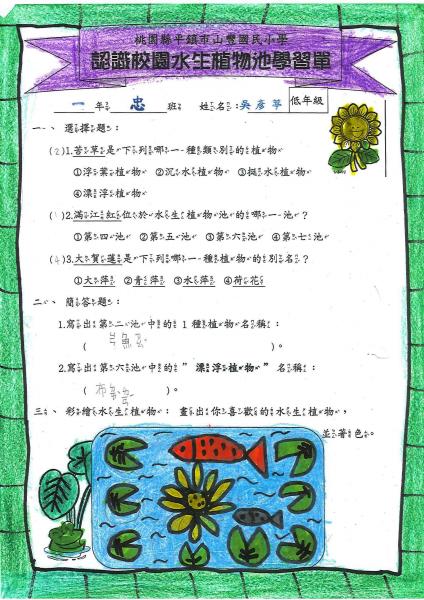 桃園縣平鎮市山豐國民小學
認識校園水生植物池學習單
一年 忠 班 姓名: 吳彥葶 低年級
一、選擇題:
(2)1.苦草是下列哪一種類別的植物
①浮葉植物 ②沉水植物 ③挺水植物
④漂浮植物
(1)2.滿江紅位於水生植物池的哪一池?
①第四池 ②第五池 ③第六池 ④第七池
(4)3.大賀蓮是下列哪一種植物的別名?
①大萍 ②青萍 ③水萍 ④荷花
二、簡答題:
1.寫出第二池中的 1 種植物名稱:
( )。
2.寫出第六池中的" 漂浮植物" 名稱:
(布袋蓮)。
三、彩繪水生植物: 畫出你喜歡的水生植物,
並著色。